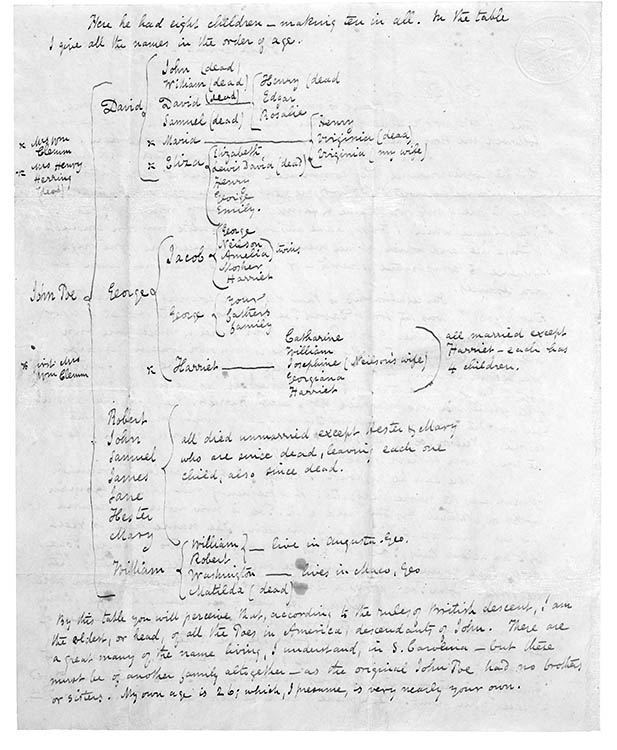 Here he had eight children – making ten in all. In the table
I give all the names in the order of age.
John (dead)
William (dead)
David (dead)
Samuel (dead)
Henry (dead
Edgar
Rosalie
David
* Maria
Henry
Virginia (dead)
Virginia (my wife)
* Eliza
Elizabeth
Lewis David (dead)
Henry
George
Emily.
* Mrs Wm
Clemm
* Mrs Henry
Herring
(dead)
John Poe
George
Jacob
George
Neilson
Amelia
Mosher
Harriet
twins
George
Your
Fathers
Family
* Harriet
Catharine
William
Josephine (Neilson's wife)
Georgiana
Harriet
all married except
Harriet – each has
4 children.
* first Mrs
Wm Clemm
Robert
John
Samuel
James
Jane
Hester
Mary
all died unmarried except Hester & Mary
who are since dead, leaving each one
child, also since dead.
William
William
Robert
– live in Augusta. Geo.
Washington – lives in Maco, Geo
Matilda (dead)
By this table you will perceive that, according to the rules of British descent, I am
the oldest, or head, of all the Poes in America, descendants of John. There are
a great many of the name living, I understand, in S. Carolina – but these
must be of another family altogether – as the original John Poe had no brothers
or sisters. My own age is 26; which, I presume, is very nearly your own.